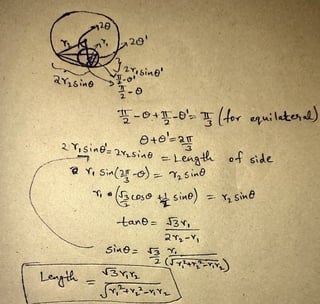 2θ
r₁
r₂
2θ'
2r₂sinθ
2r₁sinθ'
π/2 - θ'
π/2 - θ
π/2 - θ + π/2 - θ' = π/3 (for equilateral)
θ + θ' = 2π/3
2r₁sinθ' = 2r₂sinθ = Length of side
r₁ sin(2π/3 - θ) = r₂ sinθ
r₁ (√3/2 cosθ + 1/2 sinθ) = r₂ sinθ
tanθ = √3r₁/(2r₂ - r₁)
sinθ = √3/2 r₁/(√(r₁² + r₂² - r₁r₂))
Length = √3r₁r₂/√(r₁² + r₂² - r₁r₂)